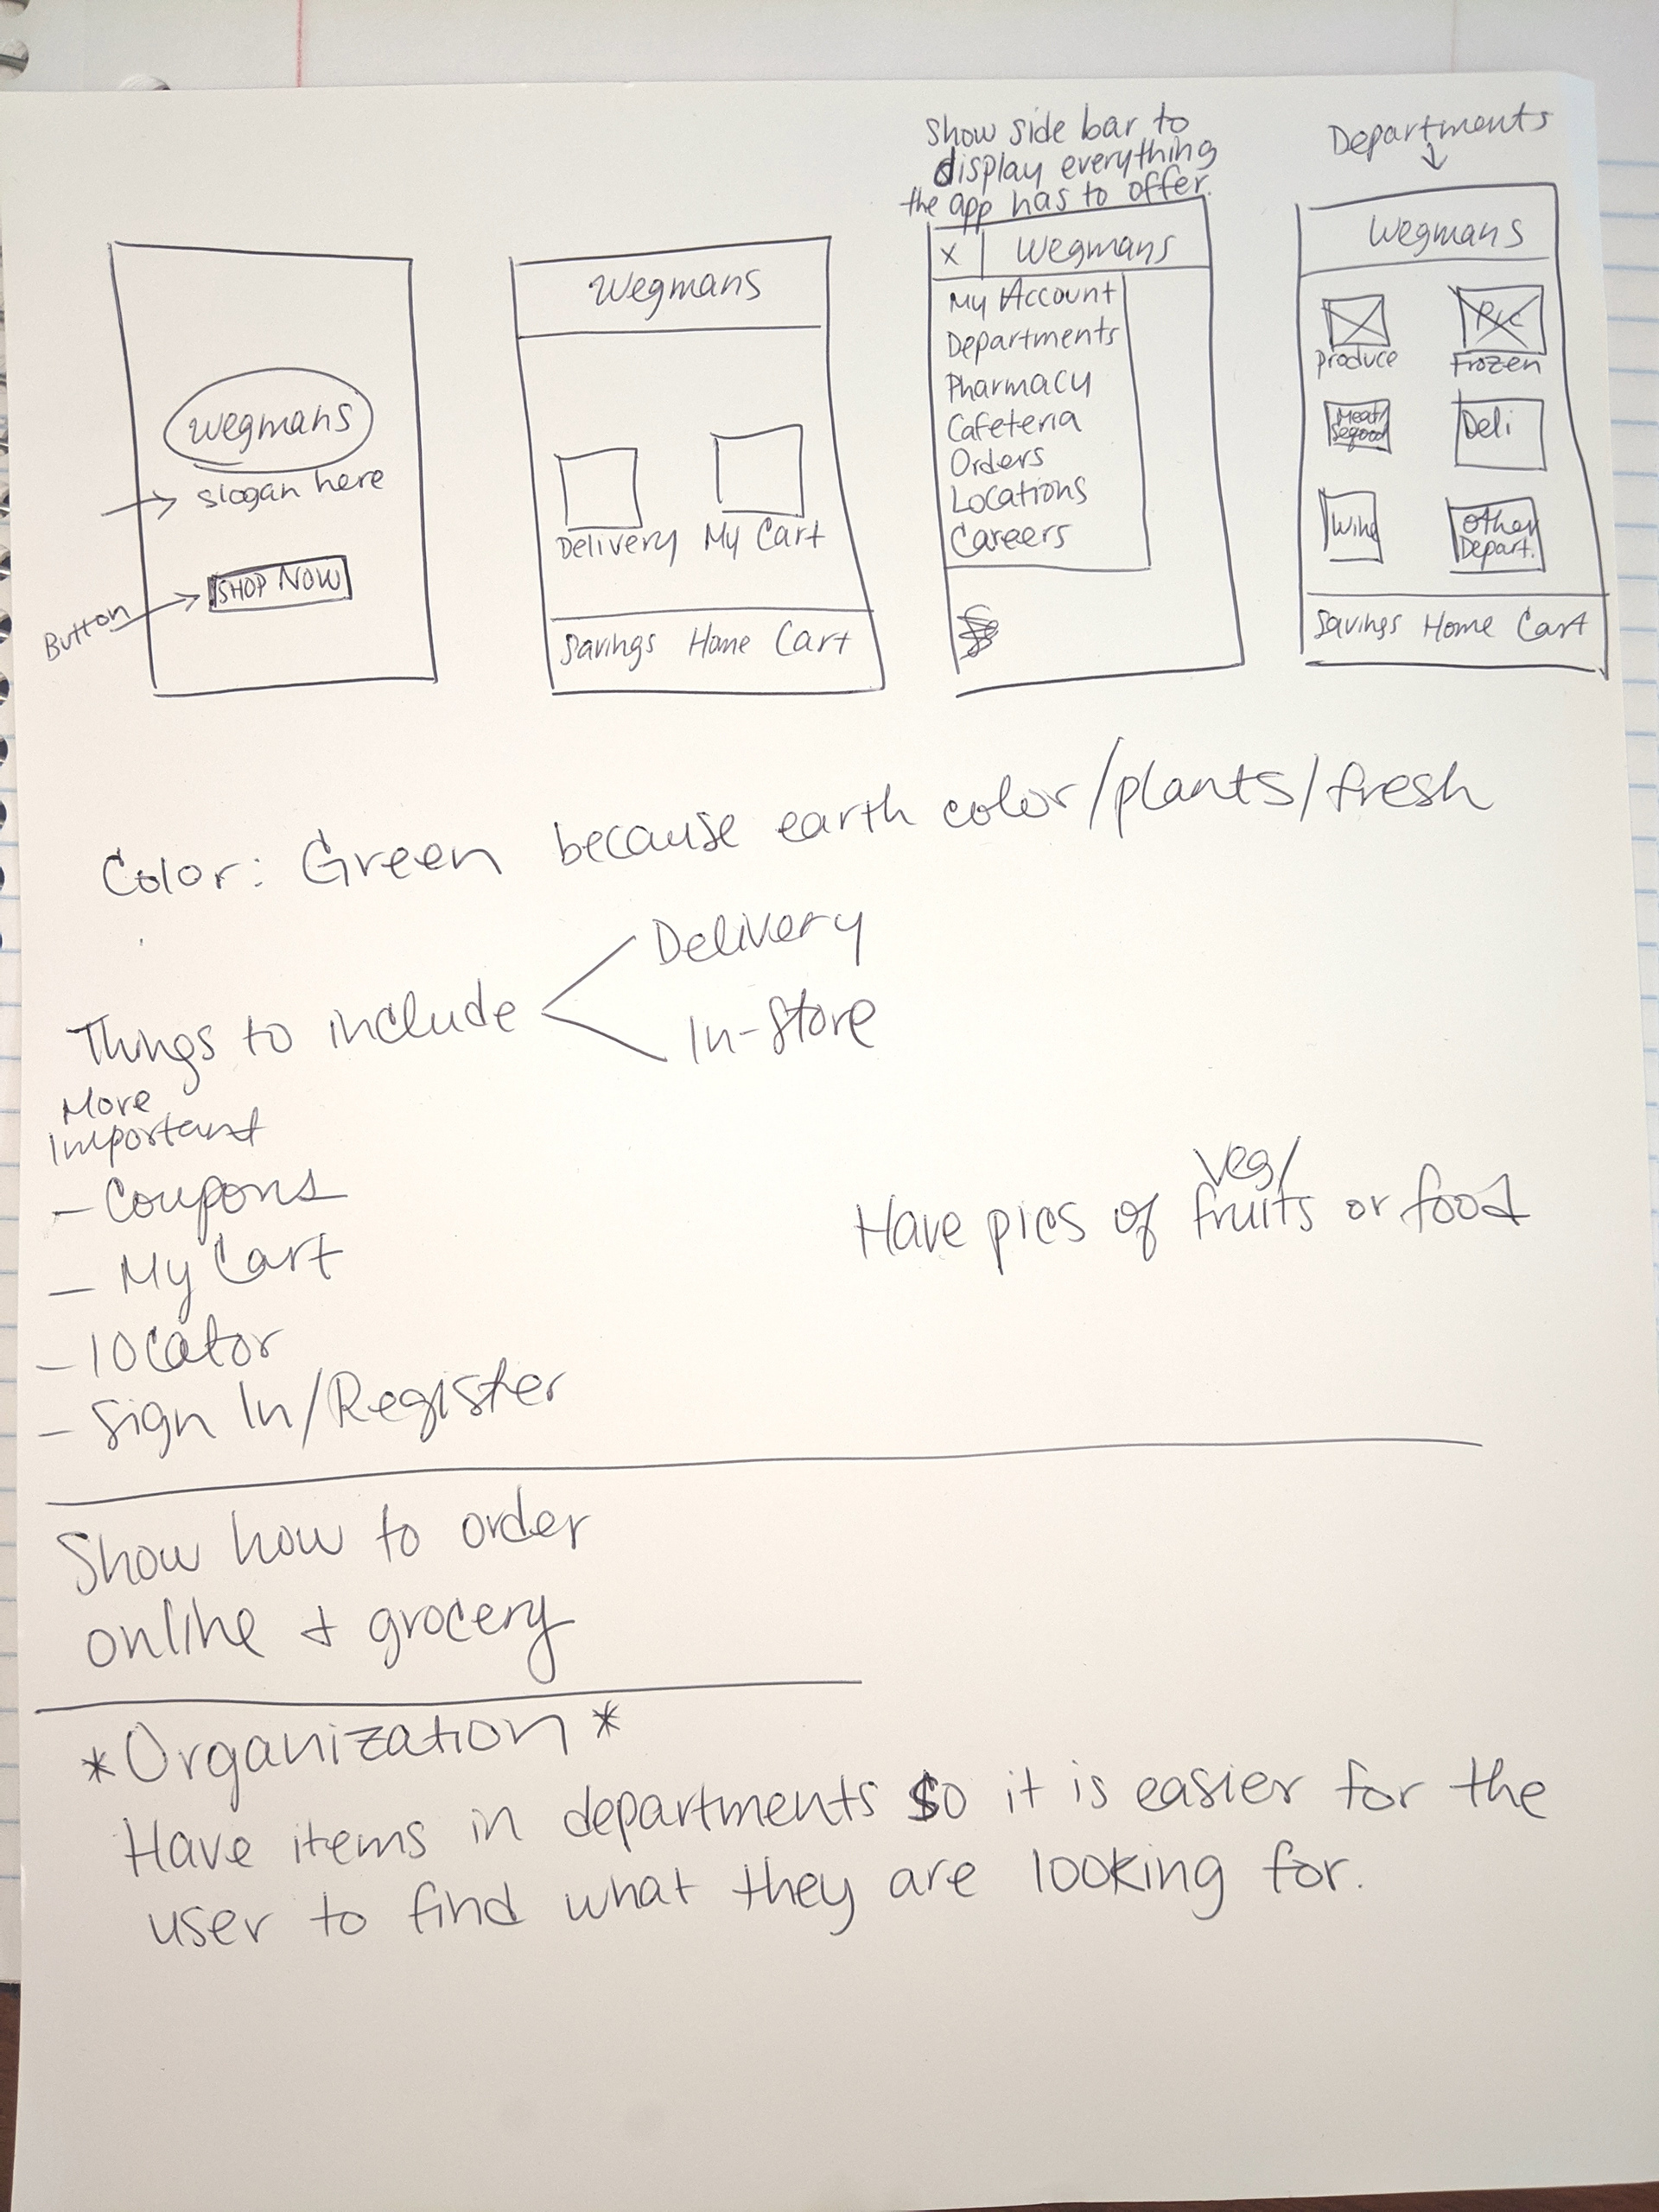 Show side bar to
display everything
the app has to offer.
Departments
Wegmans
slogan here
SHOP NOW
Button
Wegmans
Delivery My Cart
Savings Home Cart
X Wegmans
My Account
Departments
Pharmacy
Cafeteria
Orders
Locations
Careers
Wegmans
Pic
Produce Frozen
Meat/
Deli
Wine
Other
Depart.
Savings Home Cart
Color: Green because earth color/plants/fresh
Things to include
Delivery
In-Store
More
Important
- Coupons
- My Cart
- locator
- Sign In/Register
Veg/
Have pics of fruits or food
Show how to order
online + grocery
*Organization*
Have items in departments so it is easier for the
user to find what they are looking for.